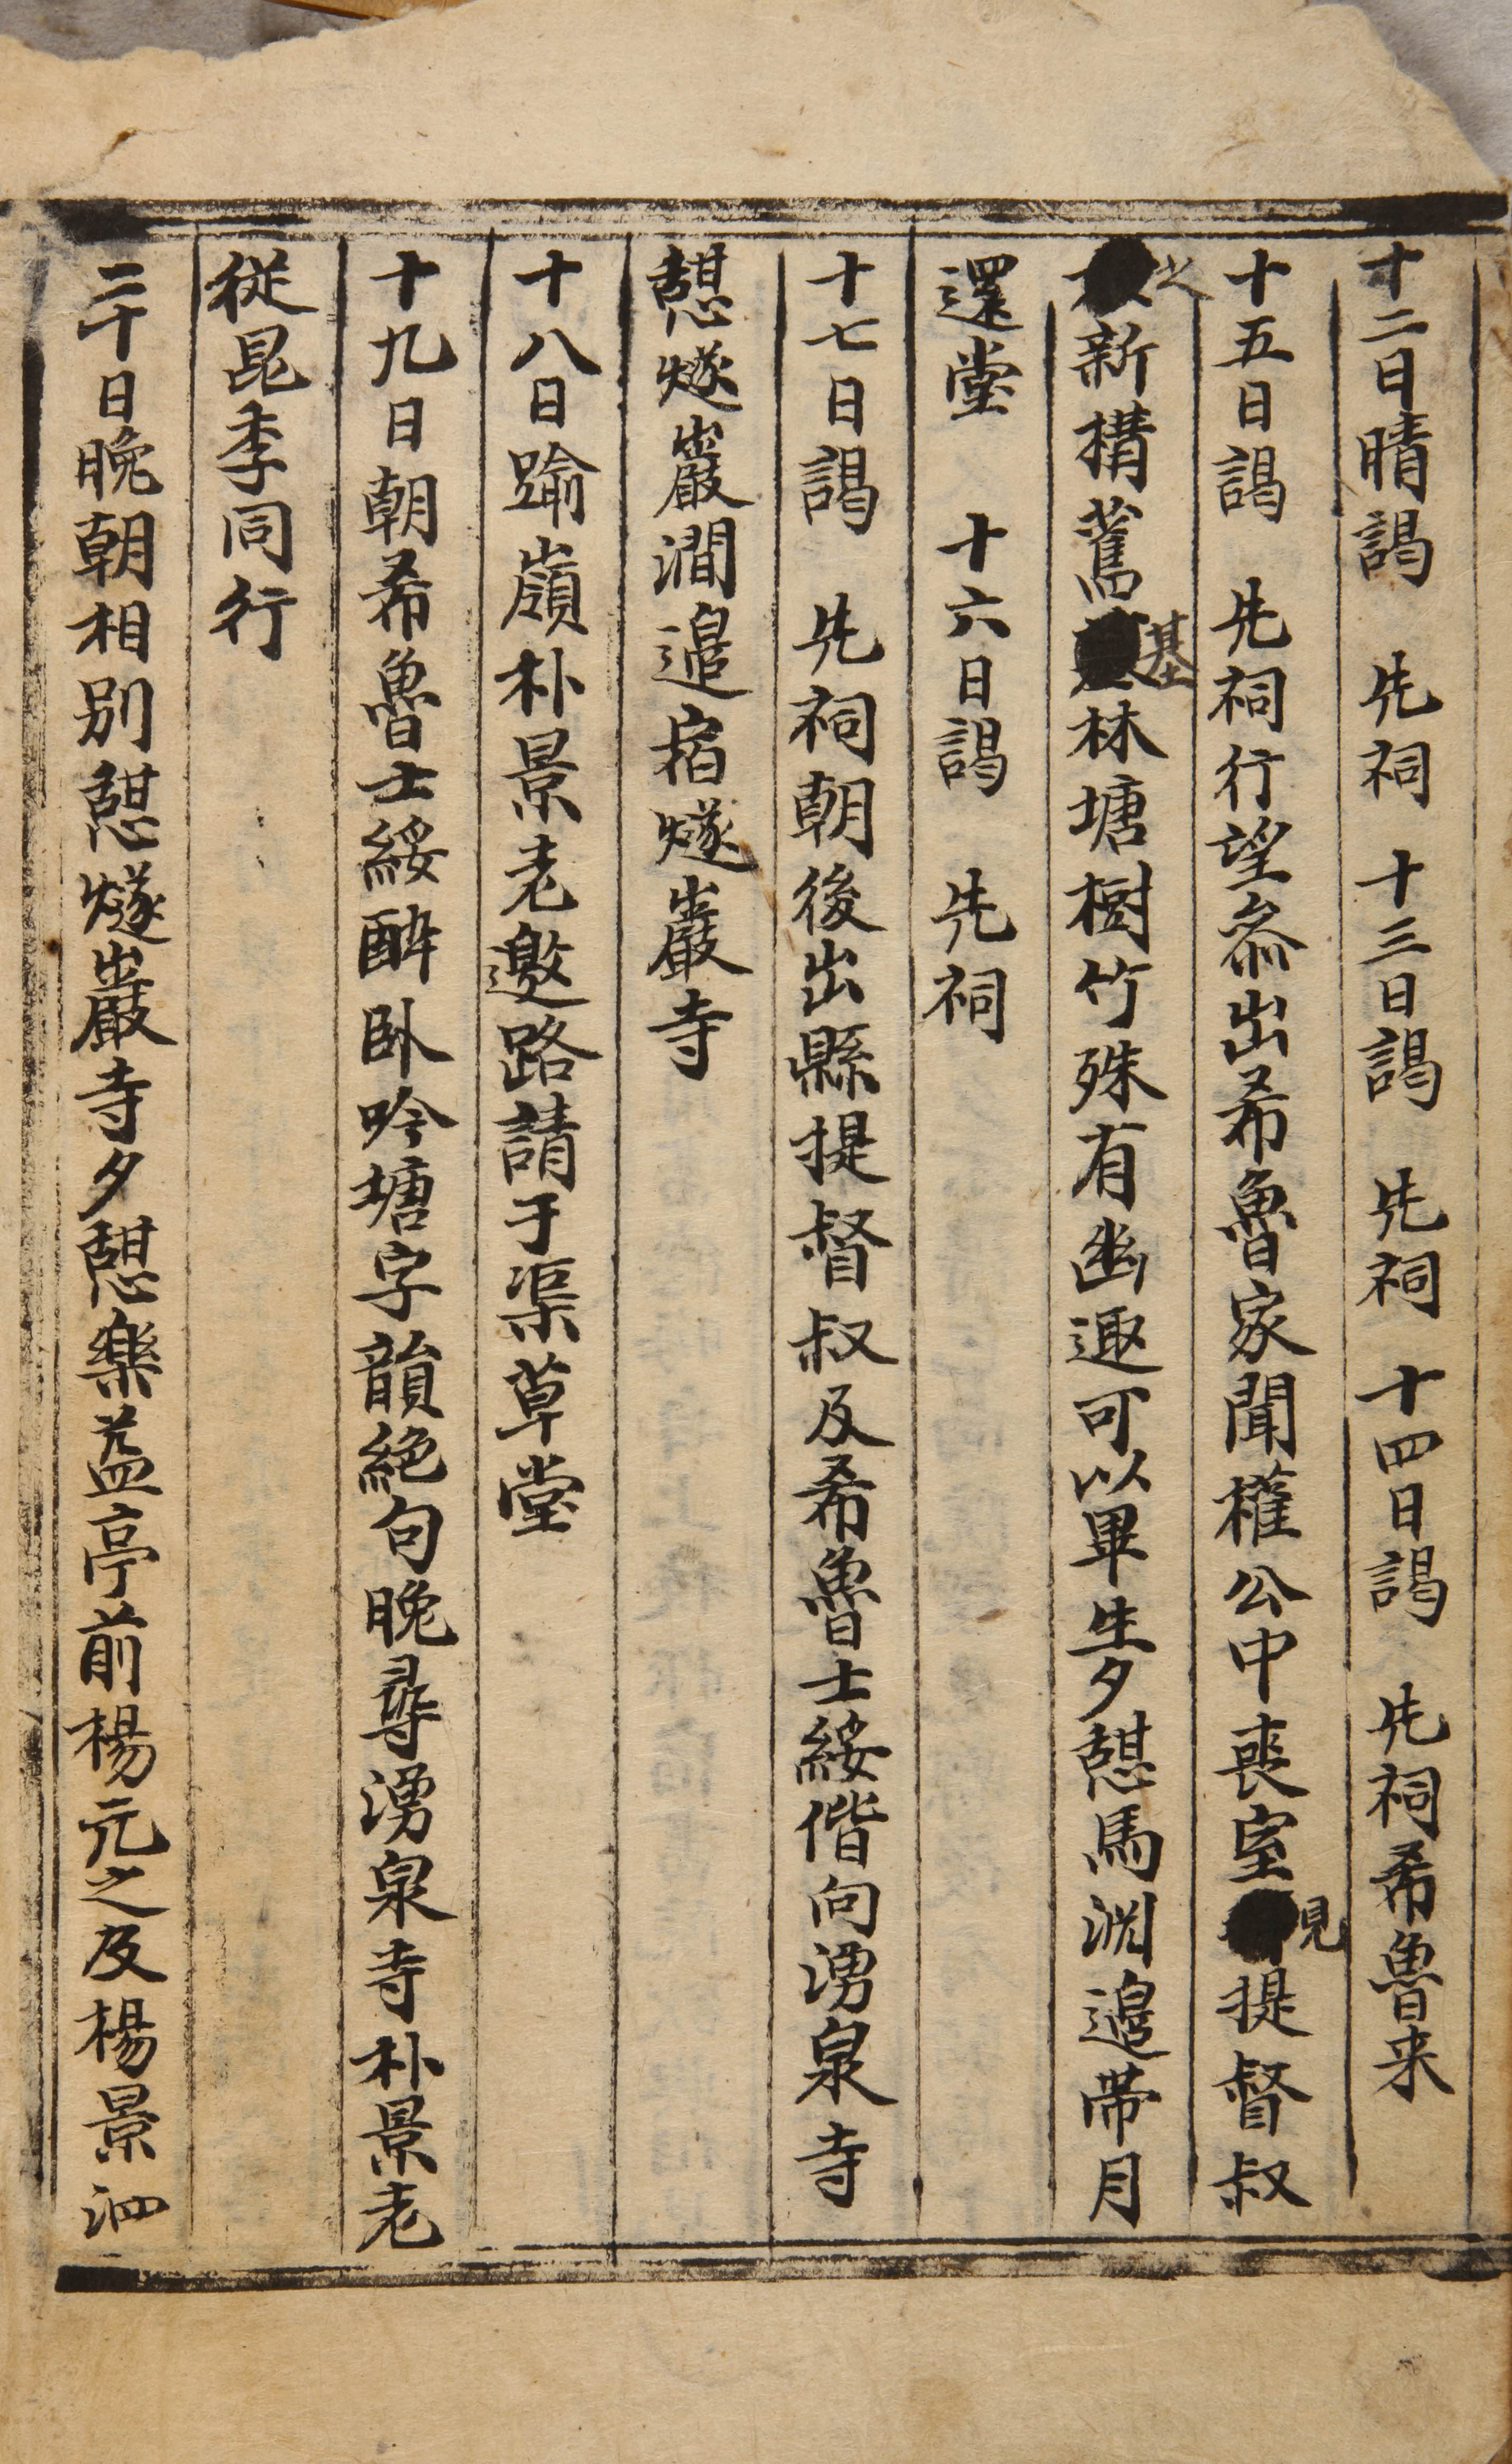 十二日晴謁　先祠　十三日謁　先祠　十四日謁　先祠希魯来
十五日謁　先祠行望叅出希魯家聞權公中喪室見提督叔
之新構舊基林塘樹竹殊有幽趣可以畢生夕憇馬渕邉帶月
還堂　十六日謁　先祠
十七日謁　先祠朝後出縣提督叔及希魯士綏偕向湧泉寺
憇燧巖澗邉宿燧巖寺
十八日踰嶺朴景老邀路請于渠草堂
十九日朝希魯士綏酔臥吟塘字韻絶句晩尋湧泉寺朴景老
従昆季同行
二十日晩朝相別憇燧巖寺夕憇樂益亭前楊元之及楊景泗